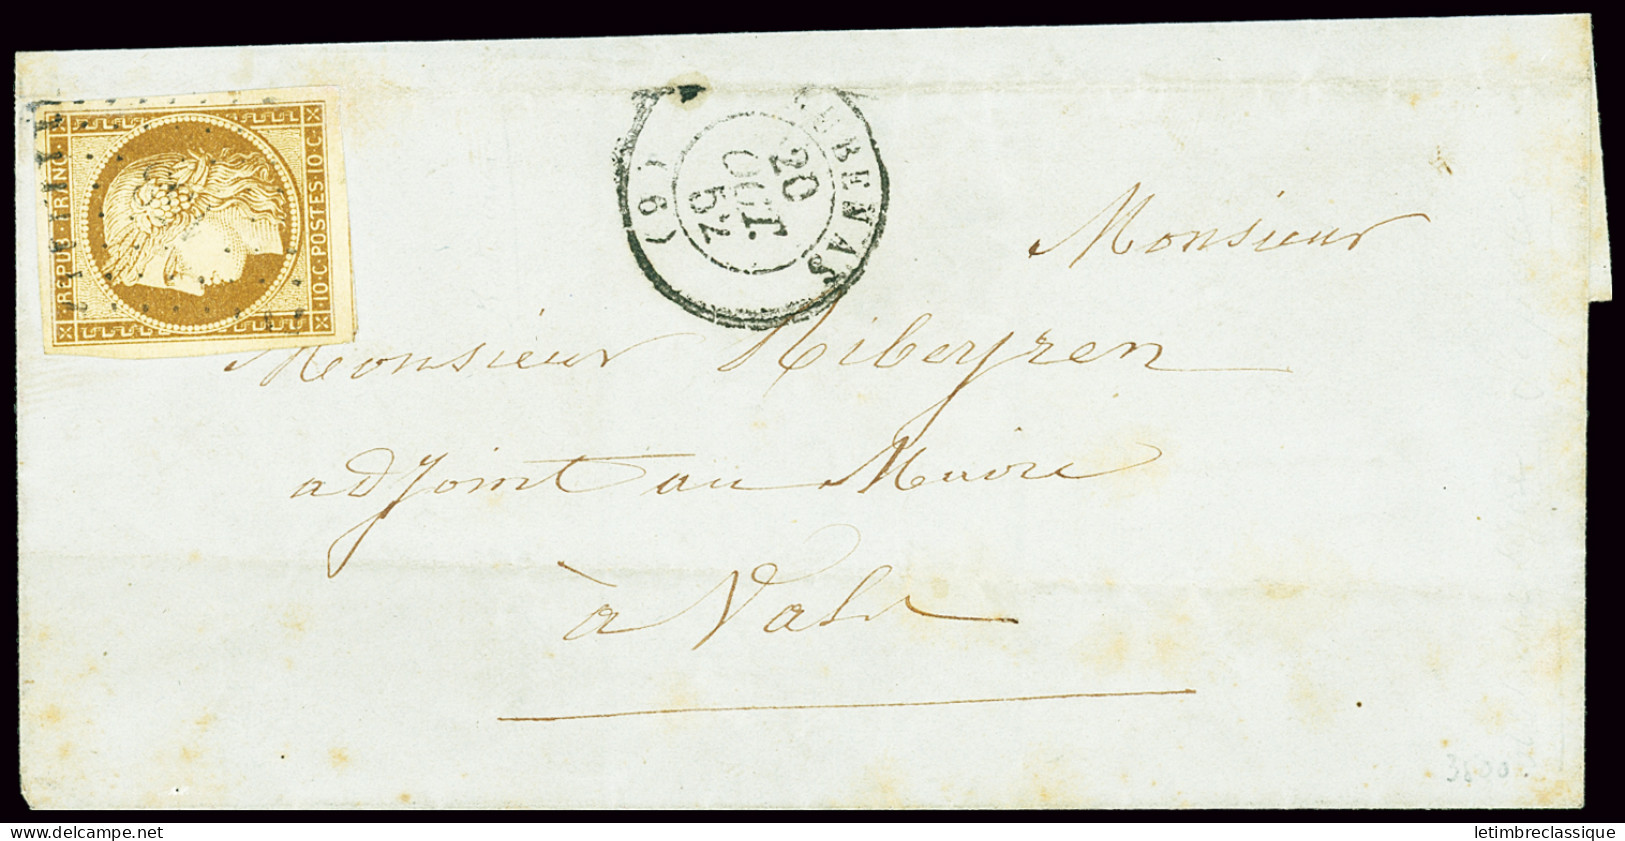 REPUB·FRANC·
10·C·POSTES·10·C·
UBENAS
20
OCT.
52
(6)
Monsieur
Monsieur Ribeyren
adjoint au Maire
à Vals
3800
www.delcampe.net
letimbreclassique